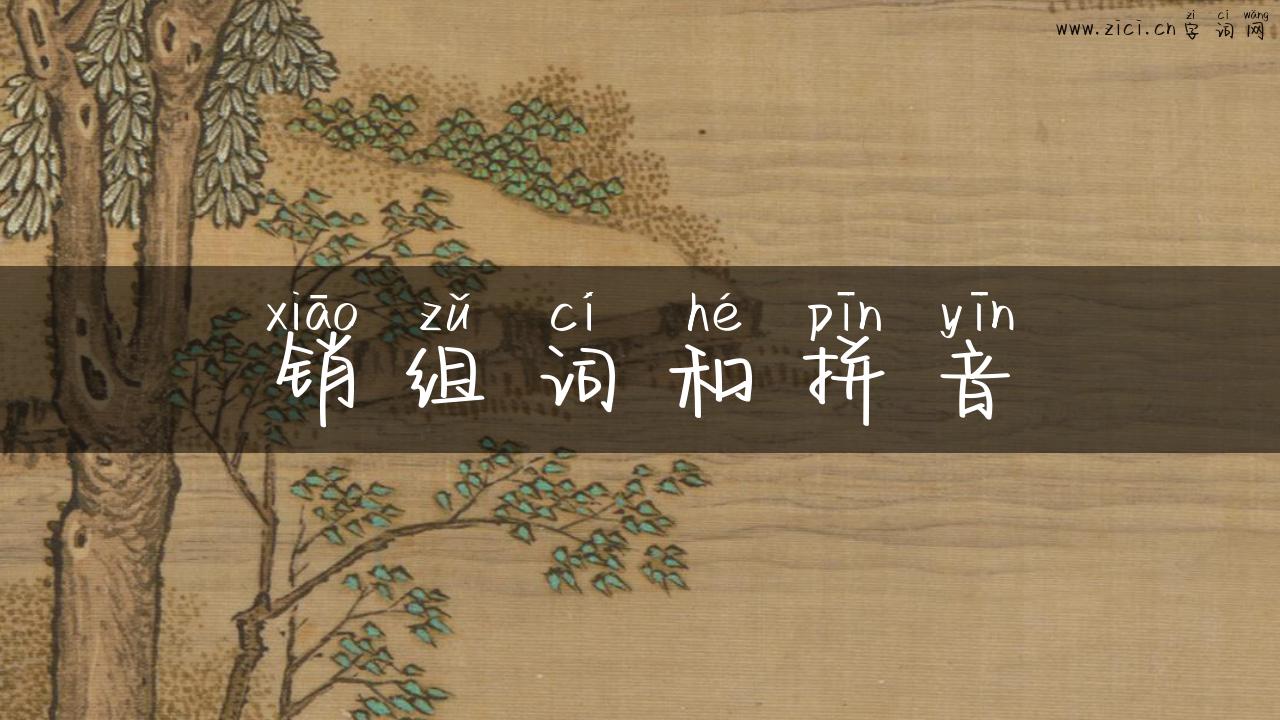 zì cí wǎng
www.zici.cn 字词网
xiāo zǔ cí hé pīn yīn
销组词和拼音